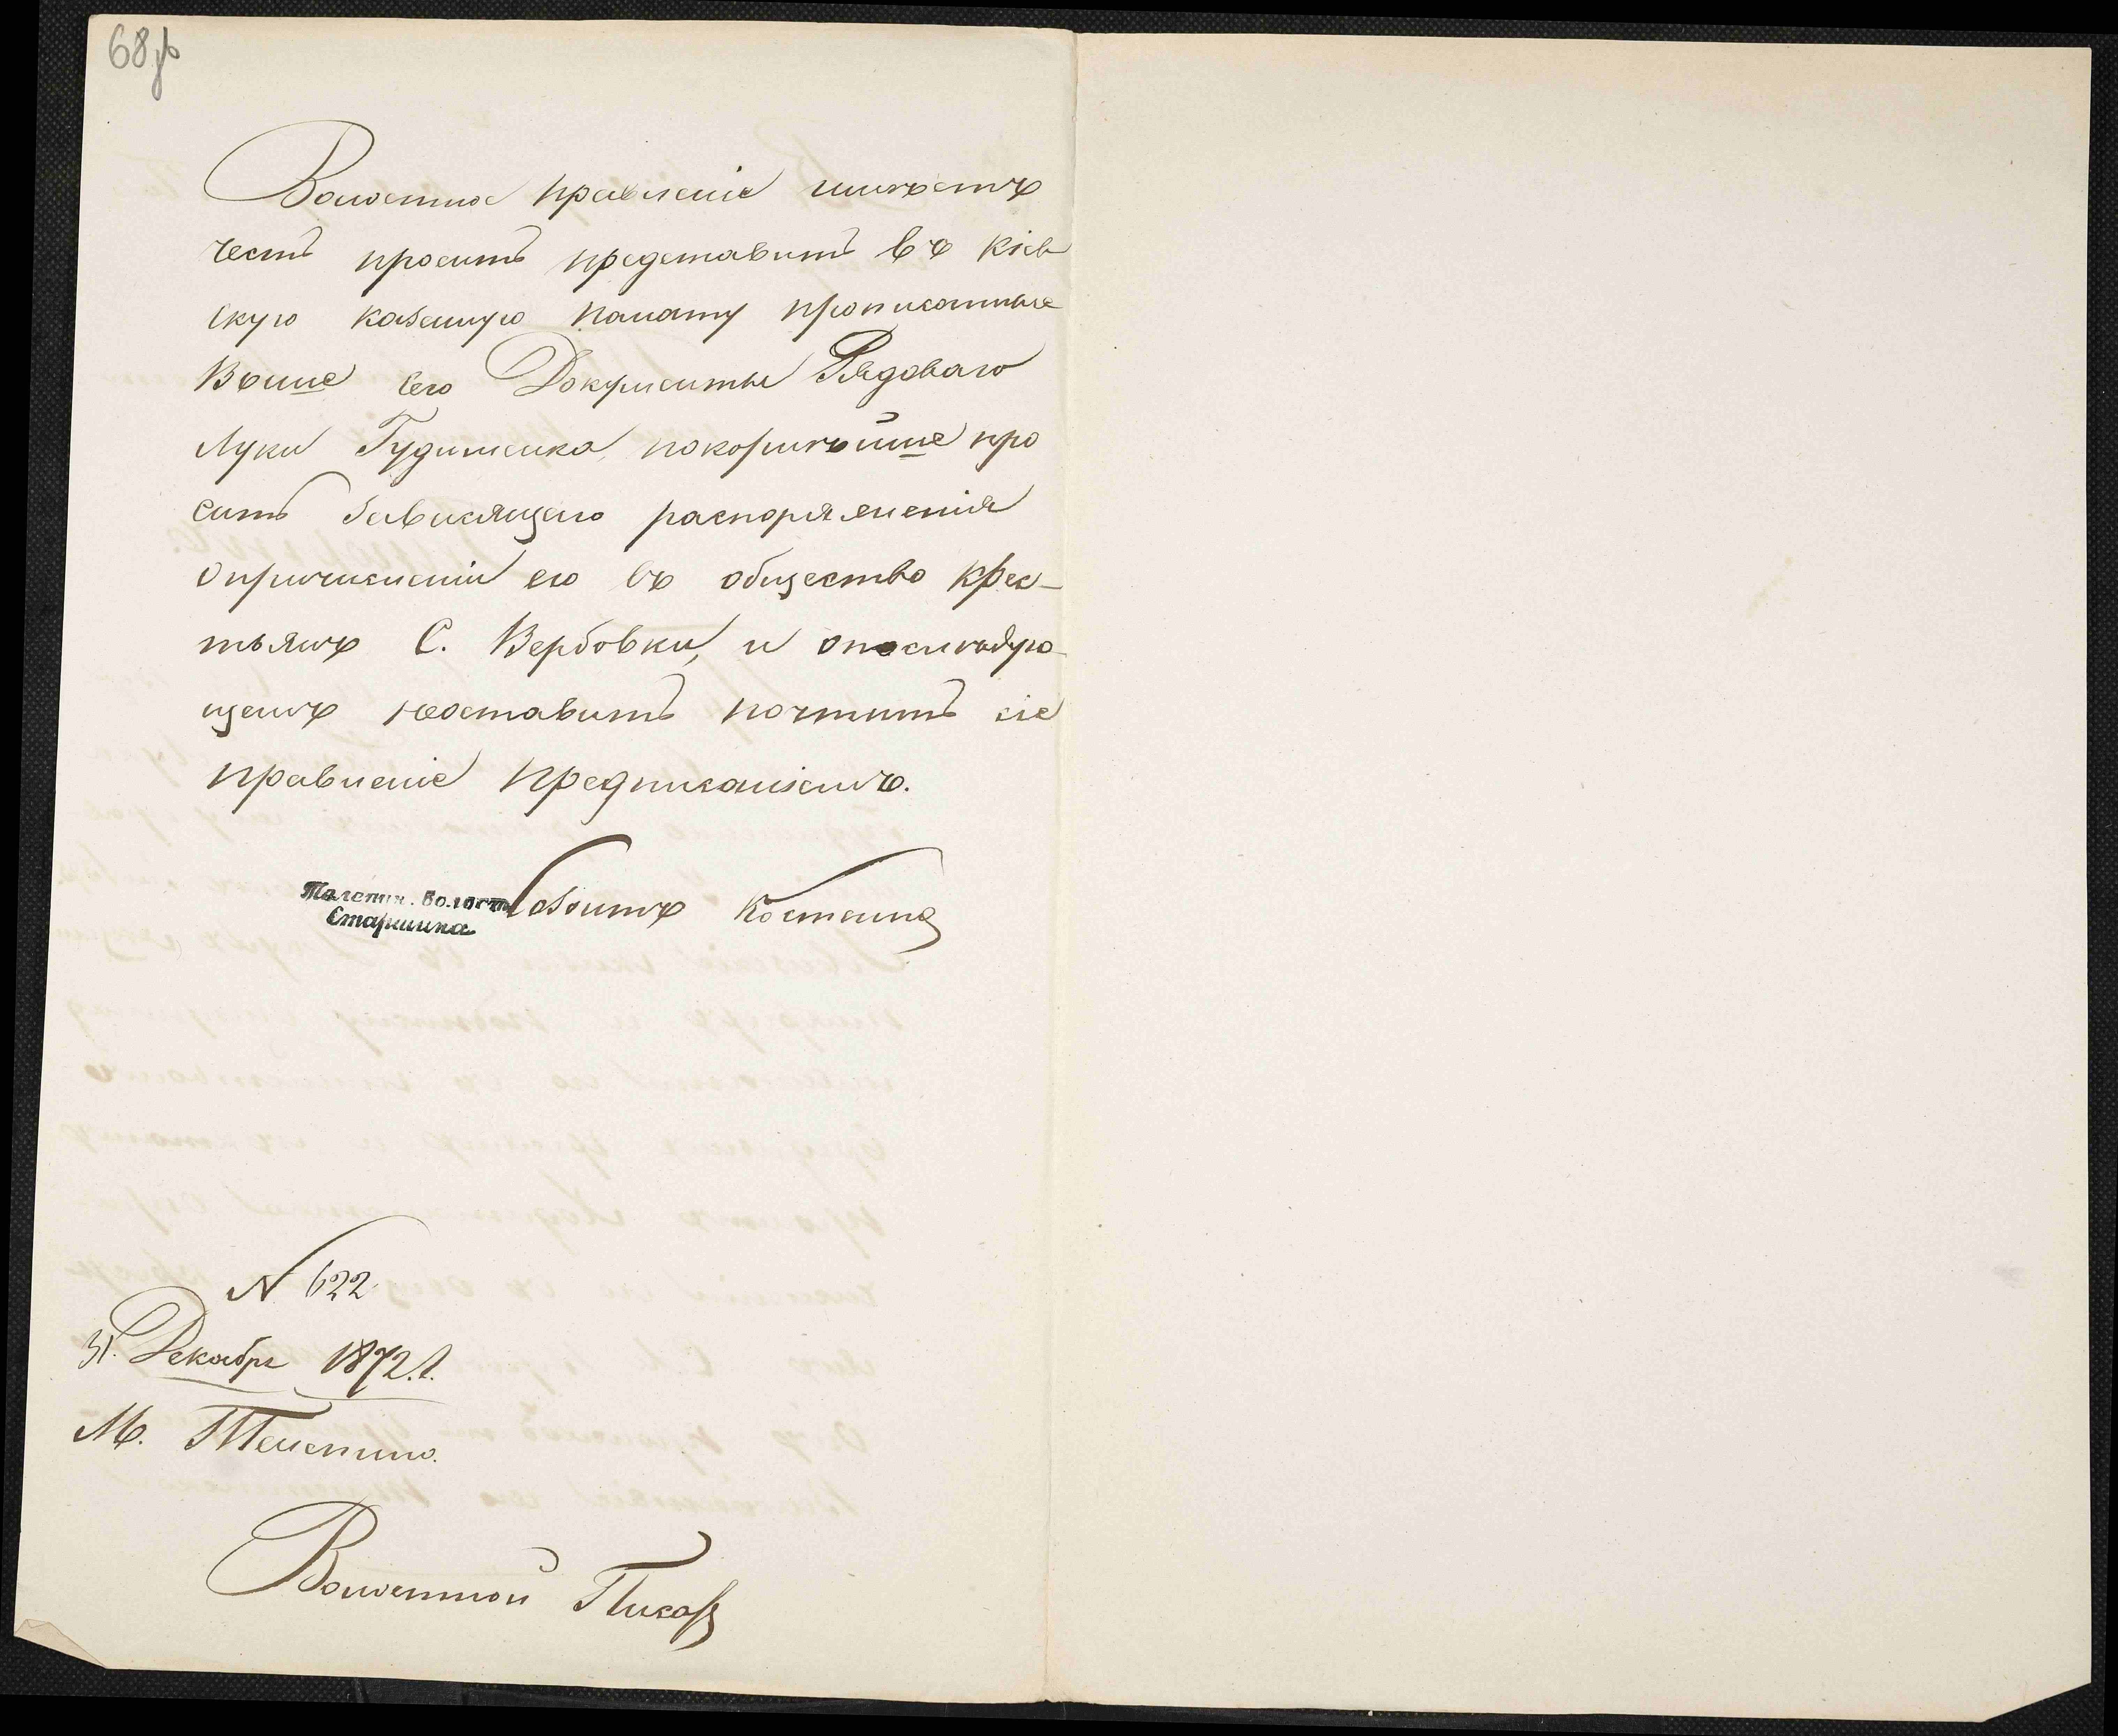 68 об
Волостное правленіе имѣетъ
честь просить представить въ Кіев
скую казенную палату прописанные
Выше сего Документы Рядоваго
Луки Гудименка, покорнѣйше про
сить зависящаго распоряженія
опричисленіи его въ общество крес-
тьянъ С. Вербовки, и опослѣдую-
щемъ неоставить почтить сіе
правленіе предписаніемъ.
Телепин. Волост.
Старшина
Костенко
N 622
31. Декабря 1872 г.
М. Телепино.
Волостной Писарь